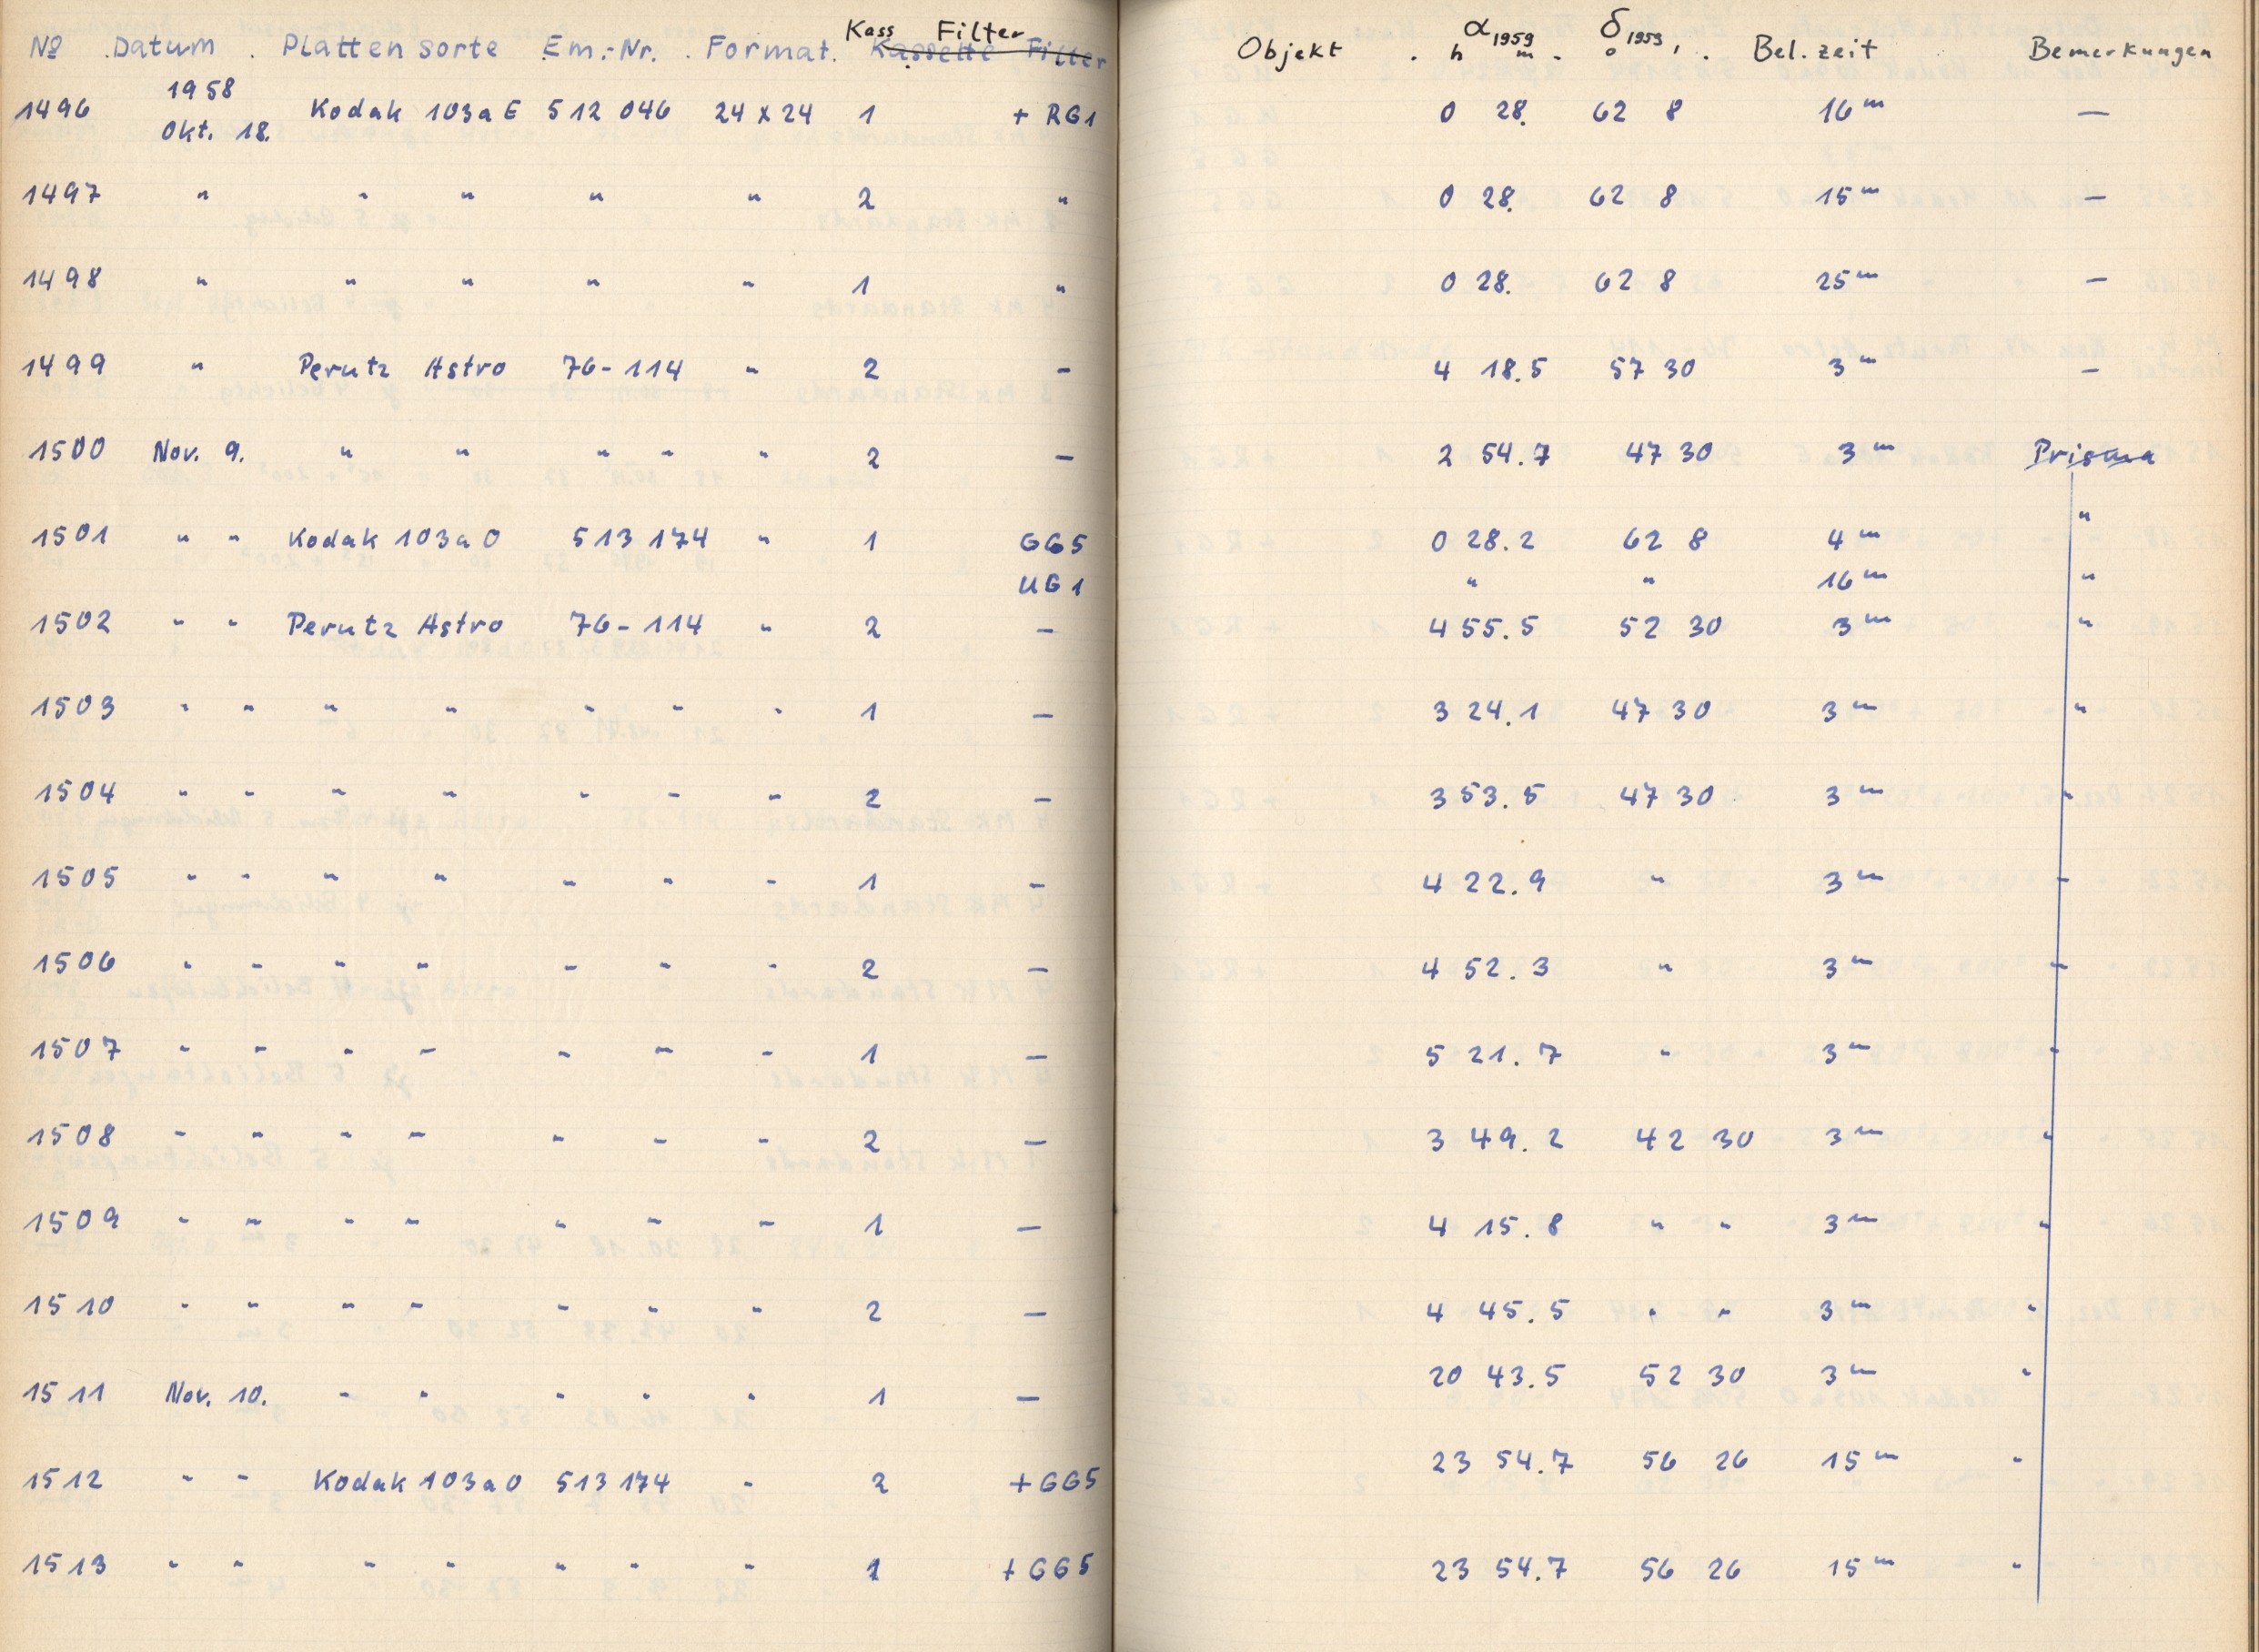 Kass Filter
№ Datum Plattensorte Em.-Nr. Format Kassette Filter Objekt α1959 h m δ1959 ° ' Bel.zeit Bemerkungen
1958
1496 Okt. 18. Kodak 103aE 512 046 24 x 24 1 + RG1 0 28. 62 8 16m —
1497 " " " " " 2 " 0 28. 62 8 15m —
1498 " " " " " 1 " 0 28. 62 8 25m —
1499 " Perutz Astro 76-114 " 2 — 4 18.5 57 30 3m —
1500 Nov. 9. " " " " " 2 — 2 54.7 47 30 3m Prisma
1501 " " Kodak 103a0 513 174 " 1 GG5 0 28.2 62 8 4m "
UG1 " " 16m "
1502 " " Perutz Astro 76-114 " 2 — 4 55.5 52 30 3m "
1503 " " " " " " " 1 — 3 24.1 47 30 3m "
1504 " " " " " " " 2 — 3 53.5 47 30 3m "
1505 " " " " " " " 1 — 4 22.9 " 3m "
1506 " " " " " " " 2 — 4 52.3 " 3m "
1507 " " " " " " " 1 — 5 21.7 " 3m "
1508 " " " " " " " 2 — 3 49.2 42 30 3m "
1509 " " " " " " " 1 — 4 15.8 " " 3m "
1510 " " " " " " " 2 — 4 45.5 " " 3m "
1511 Nov. 10. " " " " " 1 — 20 43.5 52 30 3m "
1512 " " Kodak 103a0 513 174 " 2 + GG5 23 54.7 56 26 15m "
1513 " " " " " " " 1 + GG5 23 54.7 56 26 15m "